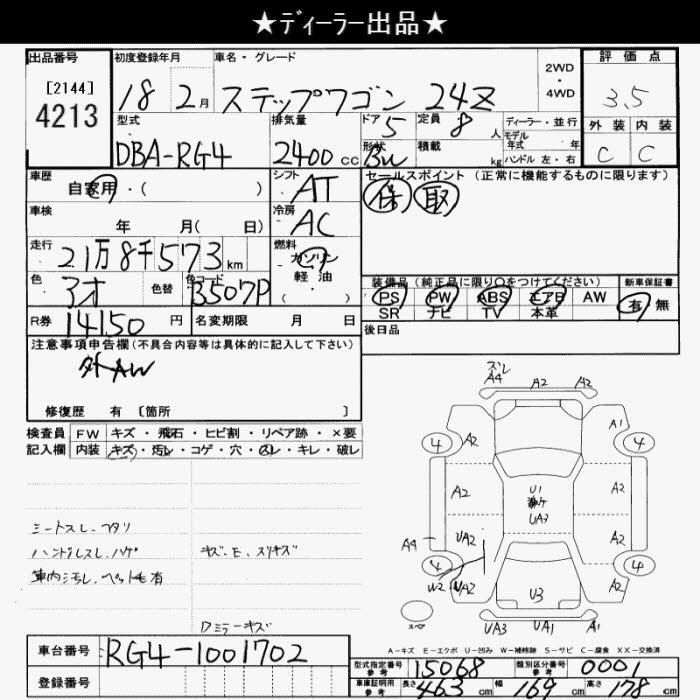 ★ディーラー出品★
出品番号 初度登録年月 車名・グレード 2WD・4WD 評価点
[2144]
4213
18 2月 ステップワゴン 24Z 3.5
型式 排気量 ドア 定員 ディーラー・並行 外装 内装
DBA-RG4 2400cc 5 8人 モデル年式 年 C C
形状 積載 kg ハンドル 左・右
BW
車歴 シフト セールスポイント (正常に機能するものに限ります)
自家用・( ) AT 保 取
車検 年 月( 日) 冷房 AC
走行 21万8千573km 燃料 ガソリン・軽油 ( )
色 アオ 色替 色コード B507P
装備品 (純正品に限り○をつけてください) 新車保証書
PS PW ABS エアB AW 有 無
SR ナビ TV 本革
R券 14150円 名変期限 月 日 後日品
注意事項申告欄(不具合内容等は具体的に記入して下さい)
外AW
修復歴 有 [箇所 ]
検査員記入欄 FW キズ・飛石・ヒビ割・リペア跡・×要
内装 キズ・汚レ・コゲ・穴・スレ・キレ・破レ
シートスレ、ヘタリ
ハンドルスレ、ハゲ キズ、E、スリキズ
車内汚レ、ペット毛有
ロミラーキズ
ズレ
A4 A2 A2
A1
4 A2 4 A2
A2 U1 A2
UA3
A4 UA2 A2
4 4
W2 UA2 U3 A2
スペア UA3 UA1 A1
A-キズ E-エクボ U-凹み W-補修跡 S-サビ C-腐食 XX-交換済
車台番号 RG4-1001702
型式指定番号 参考 15068 類別区分番号 参考 0001
登録番号
車庫証明用 参考 長さ 463cm 幅 169cm 高さ 178cm